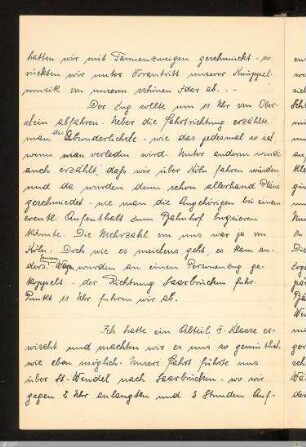 hatten wir mit Tannenzweigen geschmückt - so
rückten wir unter Vorantritt unserer Knüppel
musik von unserm schönen Idar ab. - -
Der Zug sollte um 11 Uhr von Ober-
stein abfahren. Ueber die Fahrtrichtung erzählte
man das Wunderlichste - wie das jedesmal so ist,
wenn man verladen wird. Unter anderm wurde
auch erzählt, daß wir über Köln fahren würden
und da wurden denn schon allerhand Pläne
geschmiedet - wie man die Angehörigen bei einem
eventl. Aufenthalt zum Bahnhof bugsieren
könnte. Die Mehrzahl von uns war ja von
Köln. Doch wie es meistens geht, es kam an-
ders. Unsere Wagen wurden an einen Personenzug ge-
koppelt - der Richtung Saarbrücken fuhr.
Punkt 11 Uhr fuhren wir ab.
Ich hatte ein Abteil II. Klasse er-
wischt und machten wir es uns so gemütlich
wie eben möglich. Unsere Fahrt führte uns
über St. Wendel nach Saarbrücken - wo wir
gegen 2 Uhr anlangten und 3 Stunden Auf-